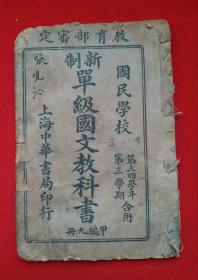 定審部育教
國民學校
第三四學年合用
第三學期
新制
單級國文教科書
甲編九冊
上海中華書局印行